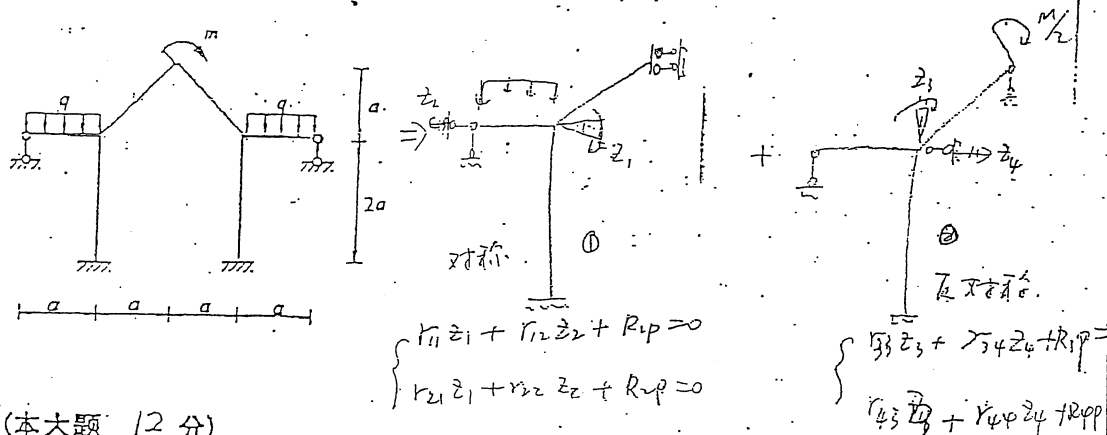 m
q
q
a
2a
a a a a
⇒
Z₂
Z₁
对称. ①
r₁₁z₁ + r₁₂z₂ + R₁p = 0
r₂₁z₁ + r₂₂z₂ + R₂p = 0
+
M/2
Z₃
Z₄
②
反对称.
r₃₃z₃ + r₃₄z₄ + R₃p =
r₄₃z₃ + r₄₄z₄ + R₄p
(本大题 12 分)